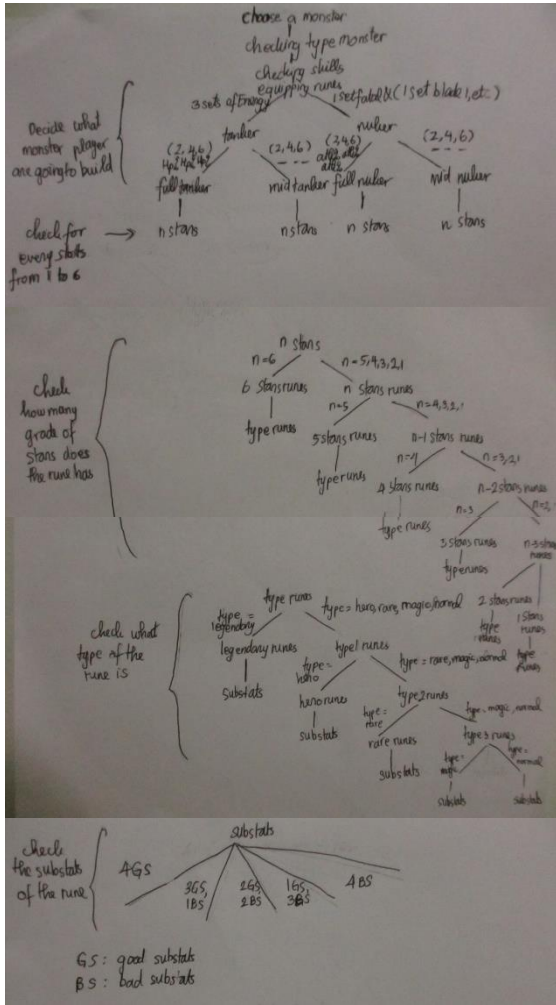 choose a monster
checking type monster
checking skills
equipping runes
3 sets of Energy
1 set fatal & (1 set blade, etc.)
tanker
nuker
Decide what
monster player
are going to build
(2,4,6)
(2,4,6)
(2,4,6)
(2,4,6)
full tanker
mid tanker
full nuker
mid nuker
check for
every stats
from 1 to 6
n stars
n stars
n stars
n stars
check
how many
grade of
stars does
the rune has
n stars
n=6
n=5,4,3,2,1
6 stars runes
n stars runes
n=5
n=4,3,2,1
type runes
5 stars runes
n-1 stars runes
n=4
n=3,2,1
type runes
4 stars runes
n-2 stars runes
n=3
n=2,
type runes
3 stars runes
n-3 stars
runes
type runes
2 stars runes
1 stars
runes
type
runes
type
runes
check what
type of the
rune is
type runes
type =
legendary
type = hero, rare, magic, normal
legendary runes
type 1 runes
type =
hero
type = rare, magic, normal
substats
hero runes
type 2 runes
type =
rare
type = magic, normal
substats
rare runes
type 3 runes
type =
magic
type =
normal
substats
substats
substats
check
the substats
of the rune
substats
4GS
3GS,
1BS
2GS,
2BS
1GS,
3BS
4BS
GS : good substats
BS : bad substats